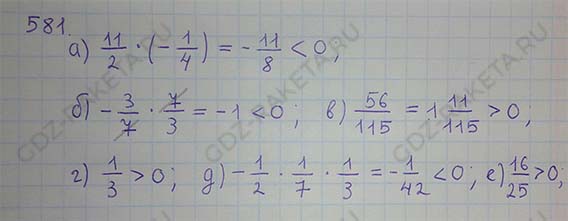 581.
а) 11/2 · (− 1/4) = − 11/8 < 0;
б) − 3/7 · 7/3 = −1 < 0; в) 56/115 = 1 11/115 > 0;
г) 1/3 > 0; д) − 1/2 · 1/7 · 1/3 = − 1/42 < 0; е) 16/25 > 0;
GDZ-RAKETA.RU
GDZ-RAKETA.RU
GDZ-RAKETA.RU